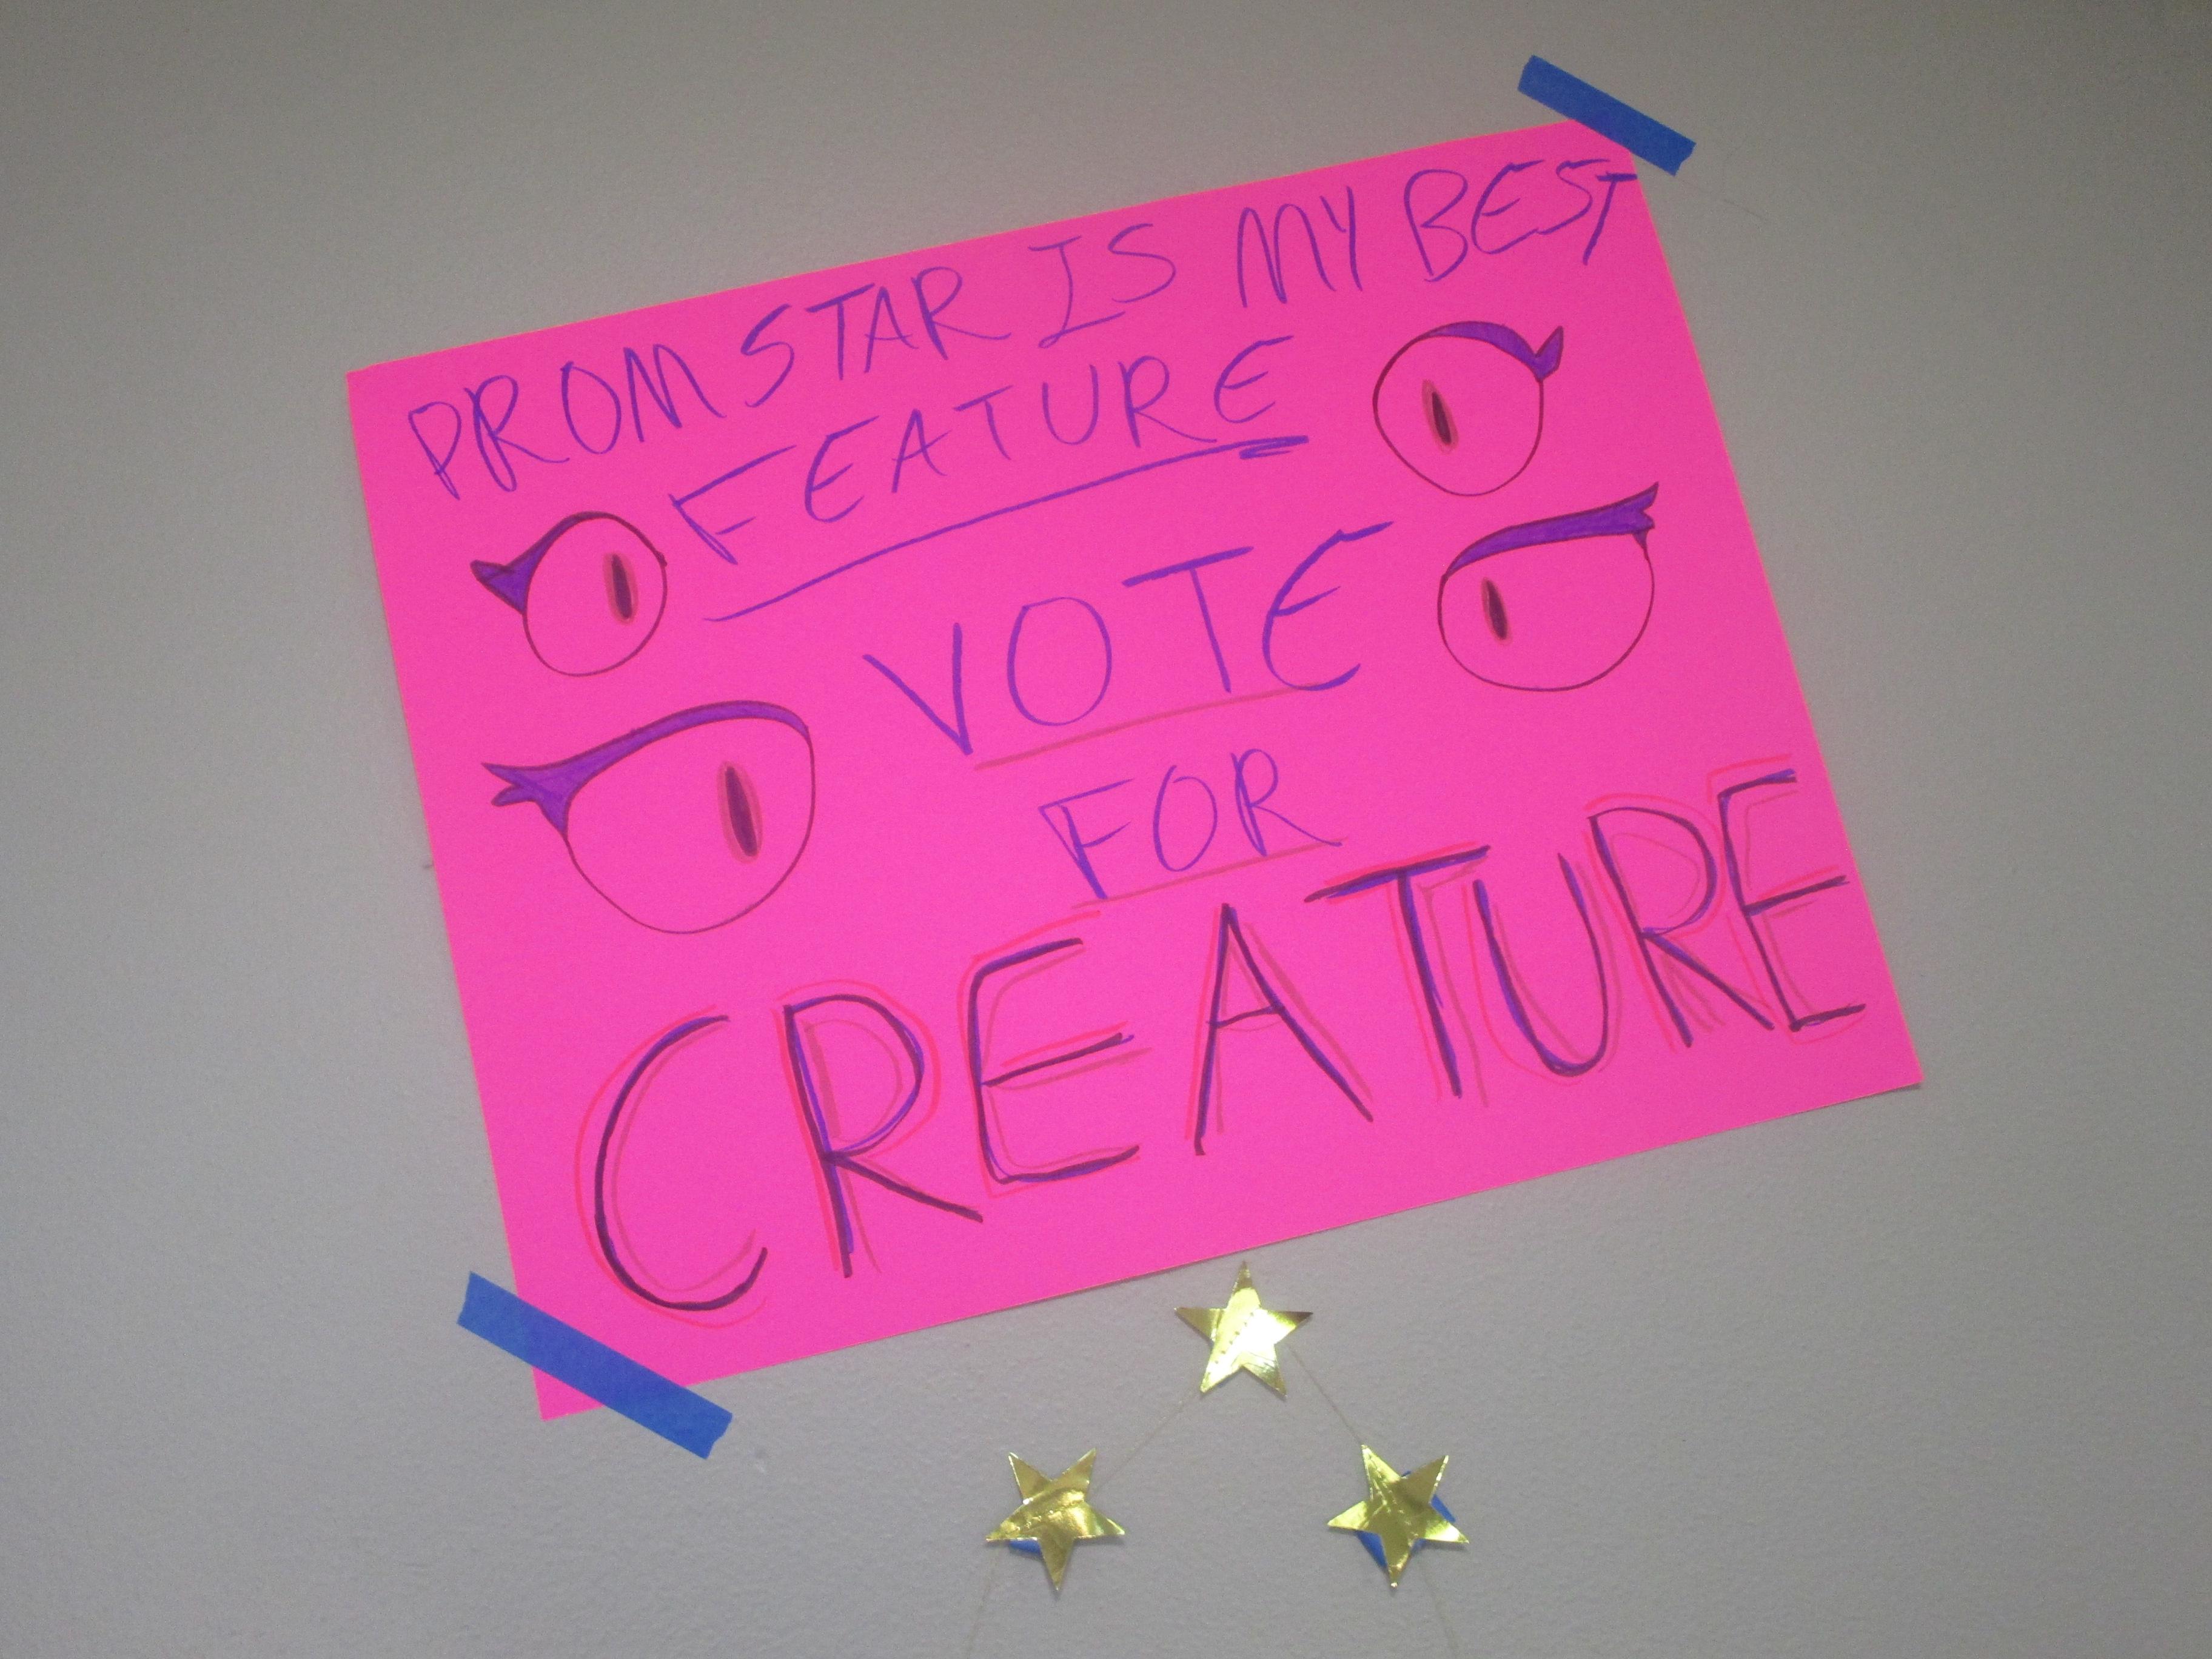 PROM STAR IS MY BEST
FEATURE
VOTE
FOR
CREATURE